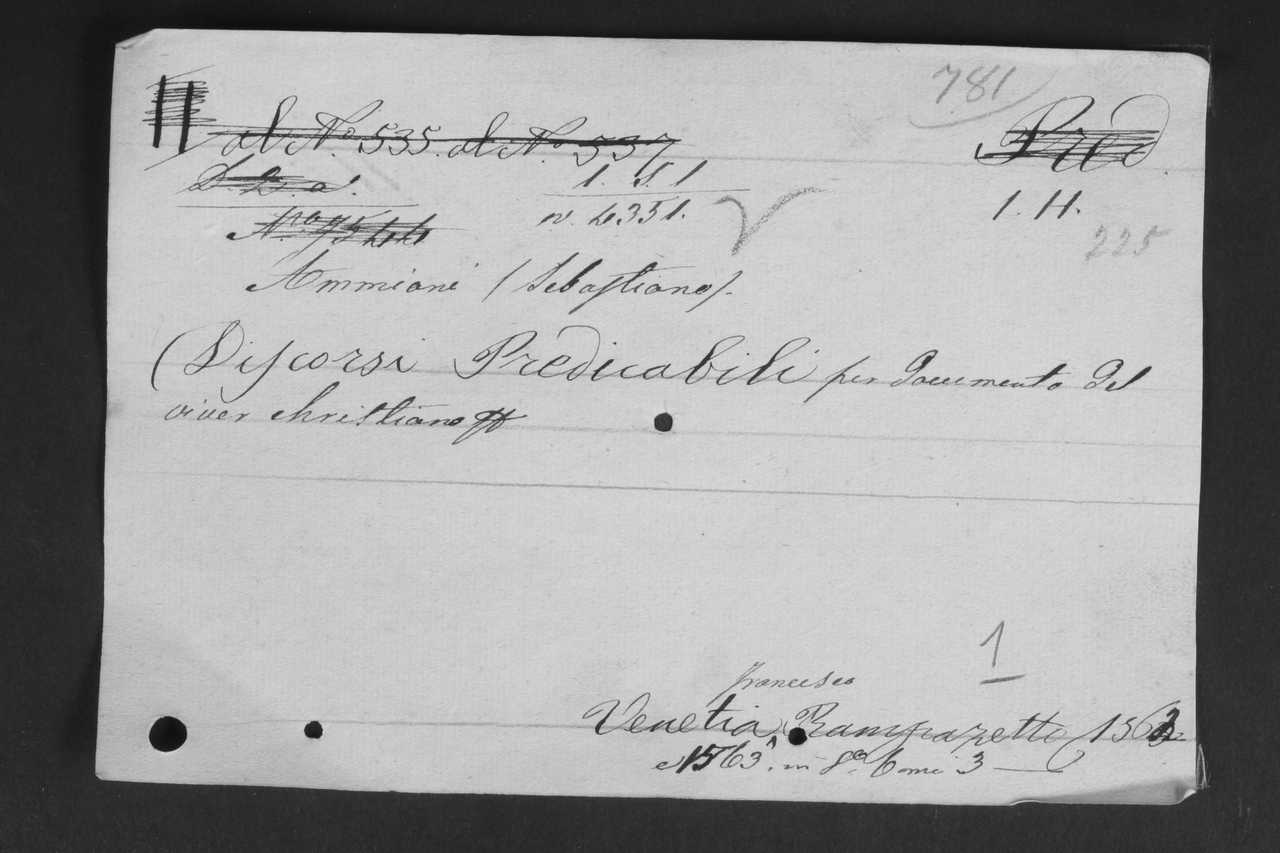 781
al N.º 535. al N.º 537
Pred
1. S. 1
n. 4351.
1. H.
225
Ammiani (Sebastiano).
(Discorsi Predicabili per documento del
viver christiano
1
Francesco
Venetia, Rampazetto, 1562
e 1563. in 8º tomi 3